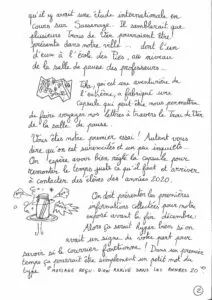 qu'il y avait une étude internationale en
cours sur Sassenage. Il semblerait que
plusieurs Trous de Ver pourraient être
présents dans notre ville... dont l'un
d'eux à l'école des Pies, au niveau
de la salle de pause des professeurs...
qui est une aventurière de
l'extrême, a fabriqué une
capsule qui peut être nous permettra
de faire voyager nos lettres à travers le Trou de Ver
de la salle de pause.
Vous êtes notre premier essai ! Autant vous
dire qu'on est surexcités et un peu inquiets...
On espère avoir bien réglé la capsule pour
remonter le temps juste ce qu'il faut et arriver
à contacter des élèves des années 2020.
On doit présenter les premières
informations collectées pour notre
exposé avant la fin décembre.
Alors ça serait hyper bien si on
avait un signe de votre part pour
savoir si le courrier fonctionne ! Dans un premier
temps ça pourrait être simplement un petit mot du
type "MESSAGE REÇU. BIEN ARRIVÉ DANS LES ANNÉES 20"
2